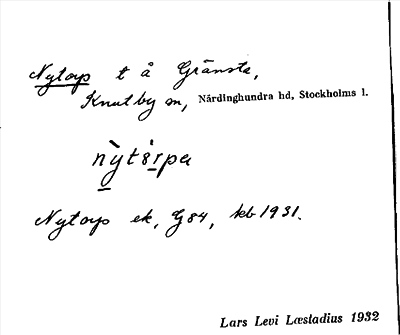 Nytorp t å Gränsta,
Knutby sn, Närdinghundra hd, Stockholms l.
nỳt8́rpa
Nytorp ek, G84, kb 1931.
Lars Levi Læstadius 1932